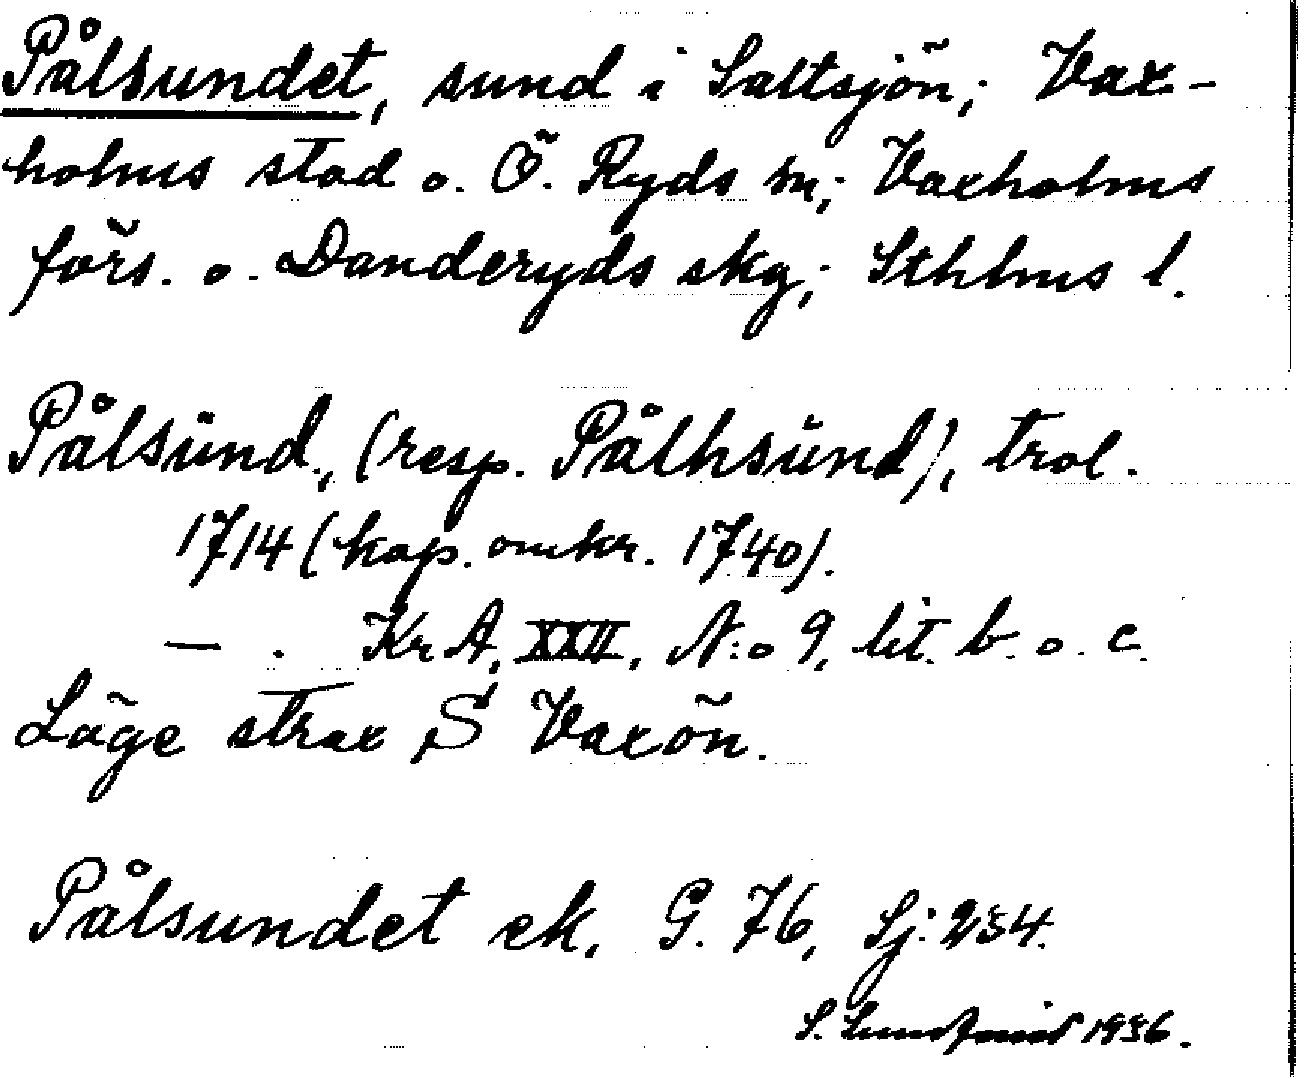 Pålsundet, sund i Saltsjön; Vax-
holms stad o. Ö. Ryds sn; Vaxholms
förs. o. Danderyds skg; Sthlms l.
Pålsünd, (resp. Pålhsünd), trol.
1714 (kap. omkr. 1740).
— . KrA, XXII, N:o 9, lit. b. o. c.
Läge strax S Vaxön.
Pålsundet ek. G. 76, Sj: 234.
S. 1936.